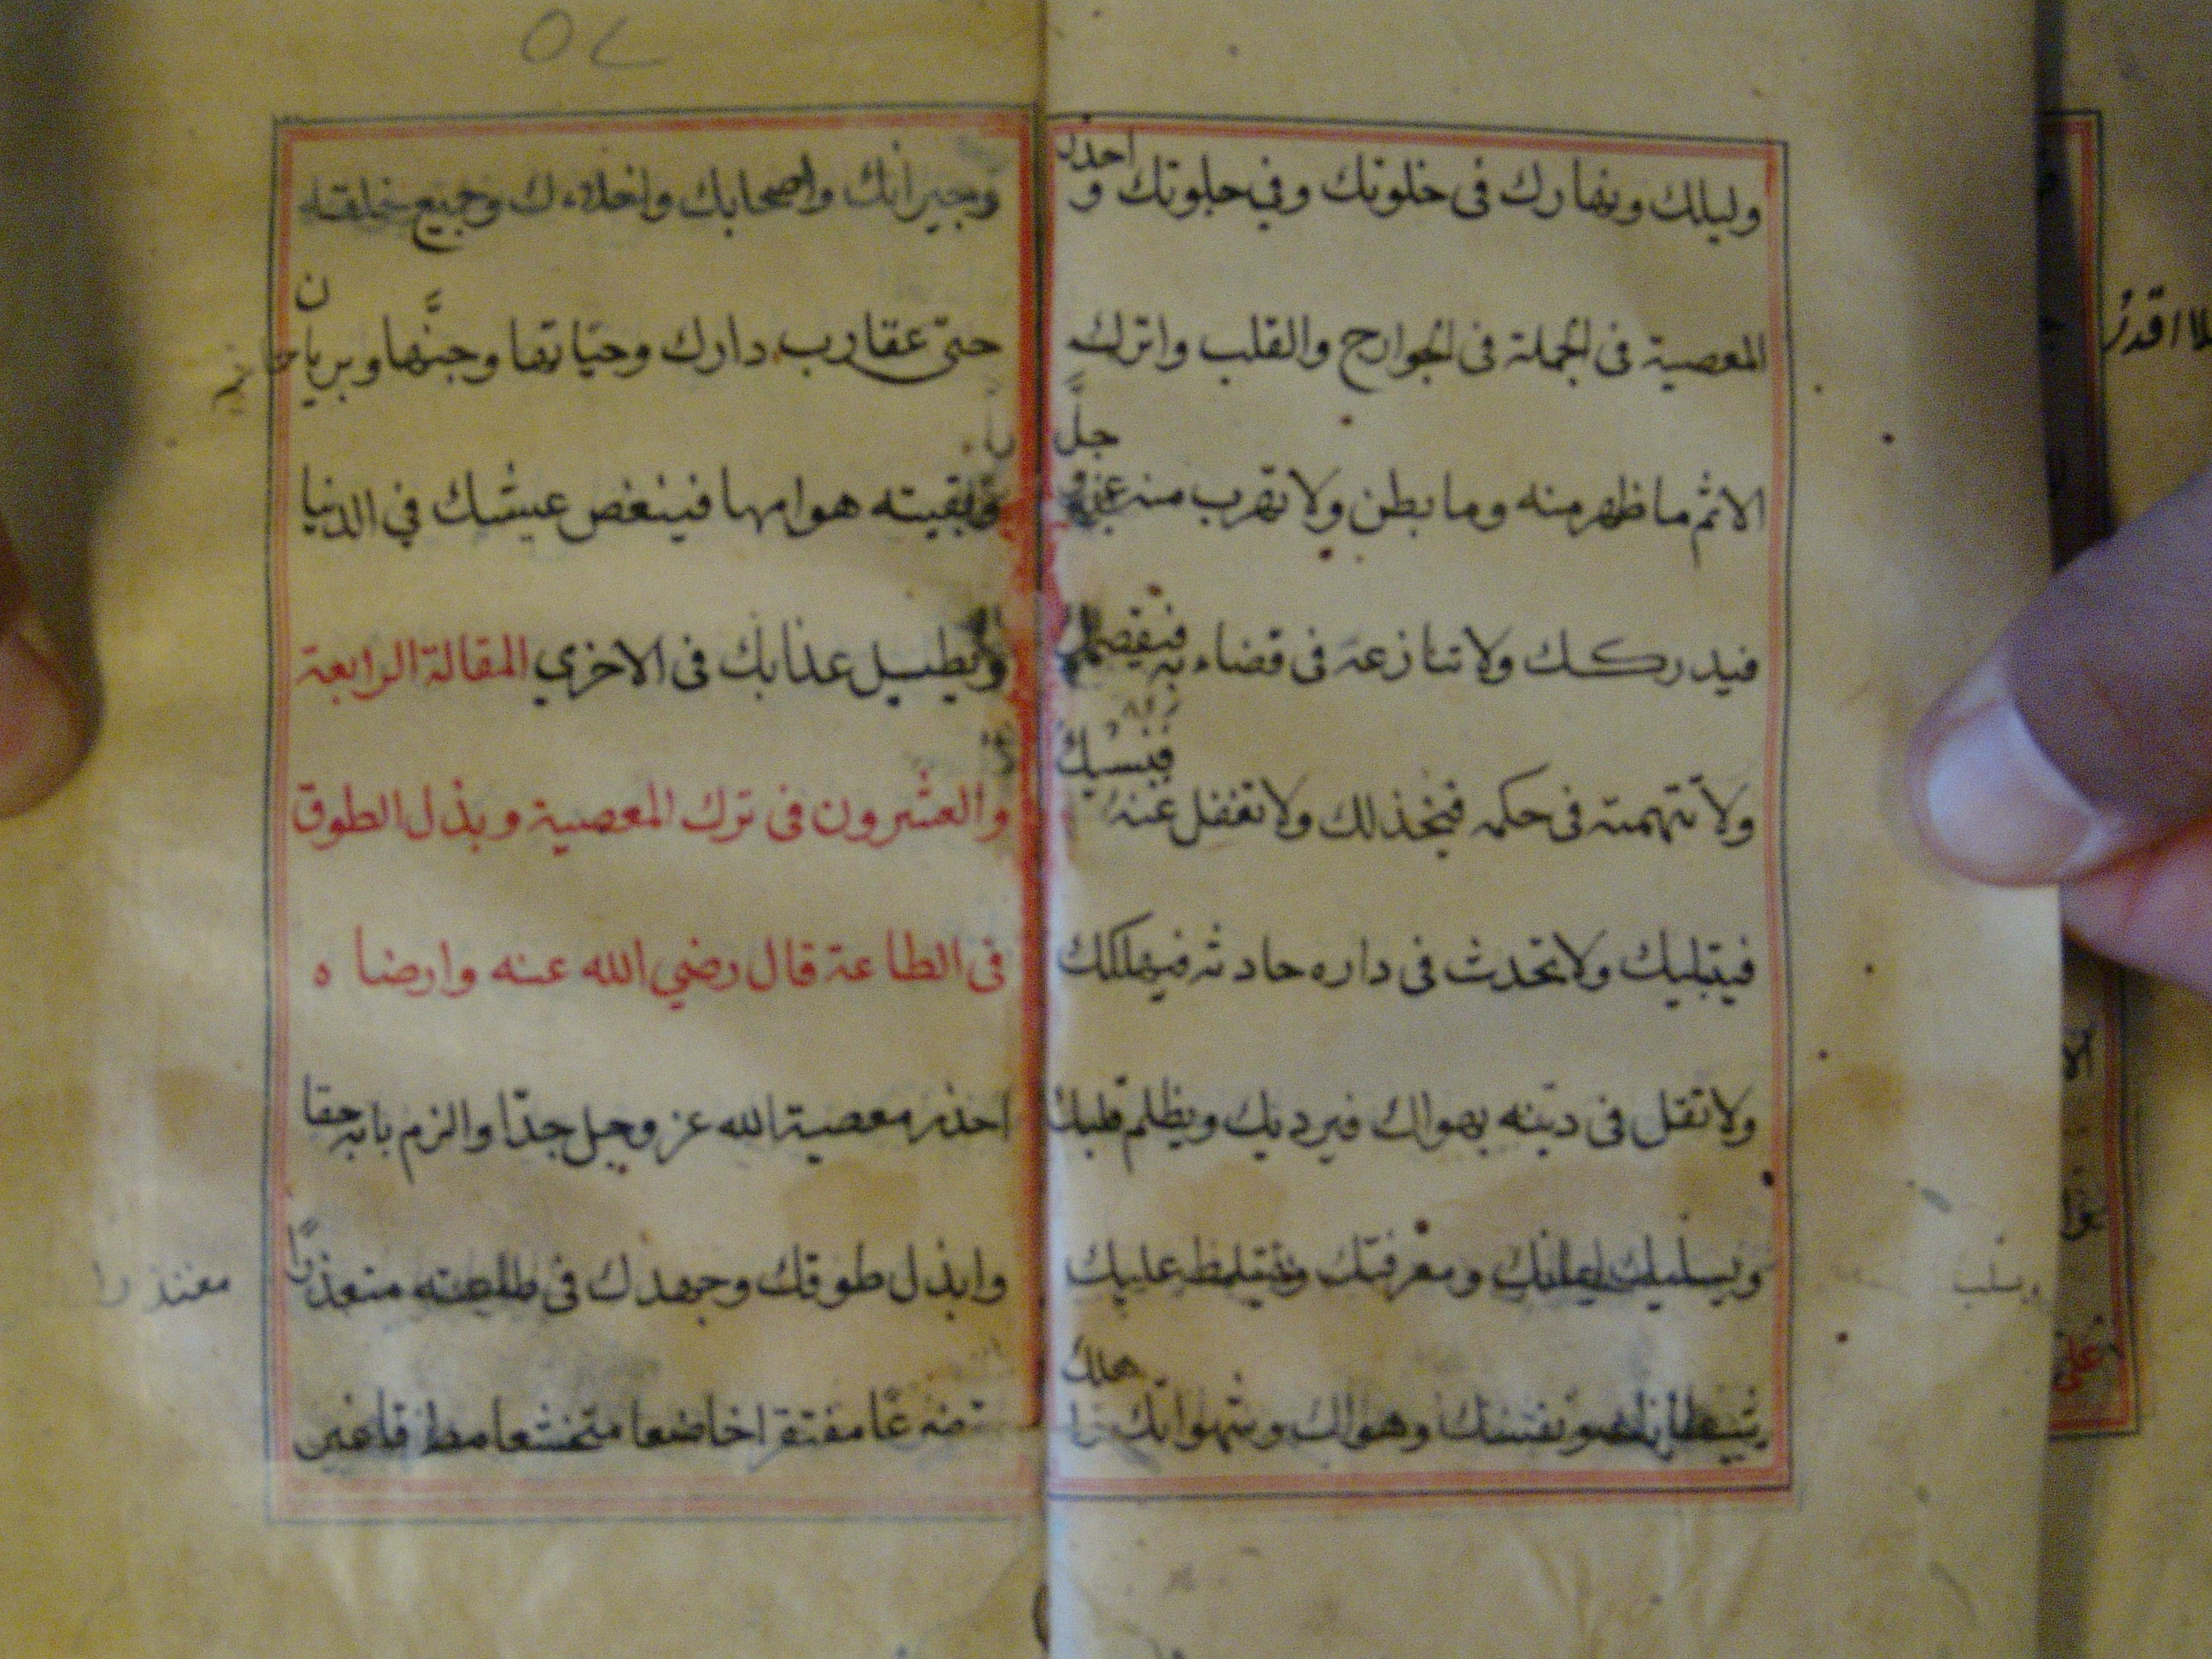 وليلك ونهارك فى خلوتك وفي جلوتك و احذر
المعصية فى الجملة فى الجوارح والقلب واترك
الاثم ما ظهر منه وما بطن ولا تهرب منه عز و جلَّ
فيدركك ولا تنازعه فى قضاءه فيقصمك
ولا تتهمته فى حكمه فيخذلك ولا تغفل عنه فينسيك
فيبتليك ولا تحدث فى داره حادثه فيهلكك
ولا تقل فى دينه بهواك فيرديك ويظلم قلبك
ويسلبك ايمانك ومعرفتك ويتسلط عليك
ونفسك وهواك وشهواتك هلك
ويسلب
OL
وجيرانك واصحابك واخلاءك وجميع خلقه
حتى عقارب دارك وحياتها وجنَّها وبرياح ن
وبقيته هوامها فينغص عيشك في الدنيا
ويطيل عذابك فى الاخري المقالة الرابعة
والعشرون فى ترك المعصية وبذل الطوق
فى الطاعة قال رضي الله عنه وارضاه
احذر معصية الله عز وجل جدّا والزم بابه حقا
وابذل طوقك وجهدك فى طاعته متعذرًا
معتذرا
متضرعًا مفتقرا خاضعا متخشعا مطرقا غير
اقدر